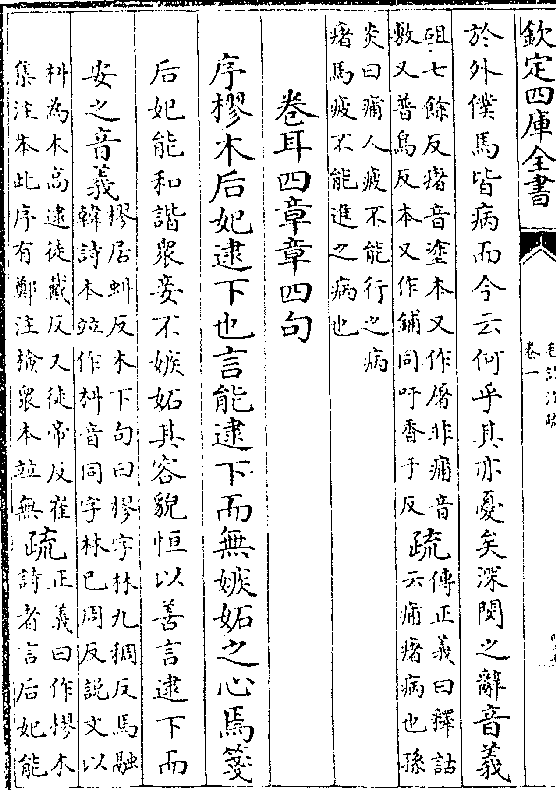 欽定四庫全書
毛詩注疏
卷一
於外僕馬皆病而今云何乎其亦憂矣深閔之辭音義
砠七餘反瘏音塗本又作屠非痡音
敷又普烏反本又作鋪同吁香于反
疏
傳正義曰釋詁
云痡瘏病也孫
炎曰痡人疲不能行之病
瘏馬疲不能進之病也
卷耳四章章四句
序樛木后妃逮下也言能逮下而無嫉妬之心焉箋
后妃能和諧衆妾不嫉妬其容貌恒以善言逮下而
安之音義
樛居虯反木下句曰樛字林九稠反馬融
韓詩本並作朻音同字林已周反説文以
朻為木高逮徒戴反又徒帝反崔
集注本此序有鄭注檢衆本並無
疏
正義曰作樛木
詩者言后妃能